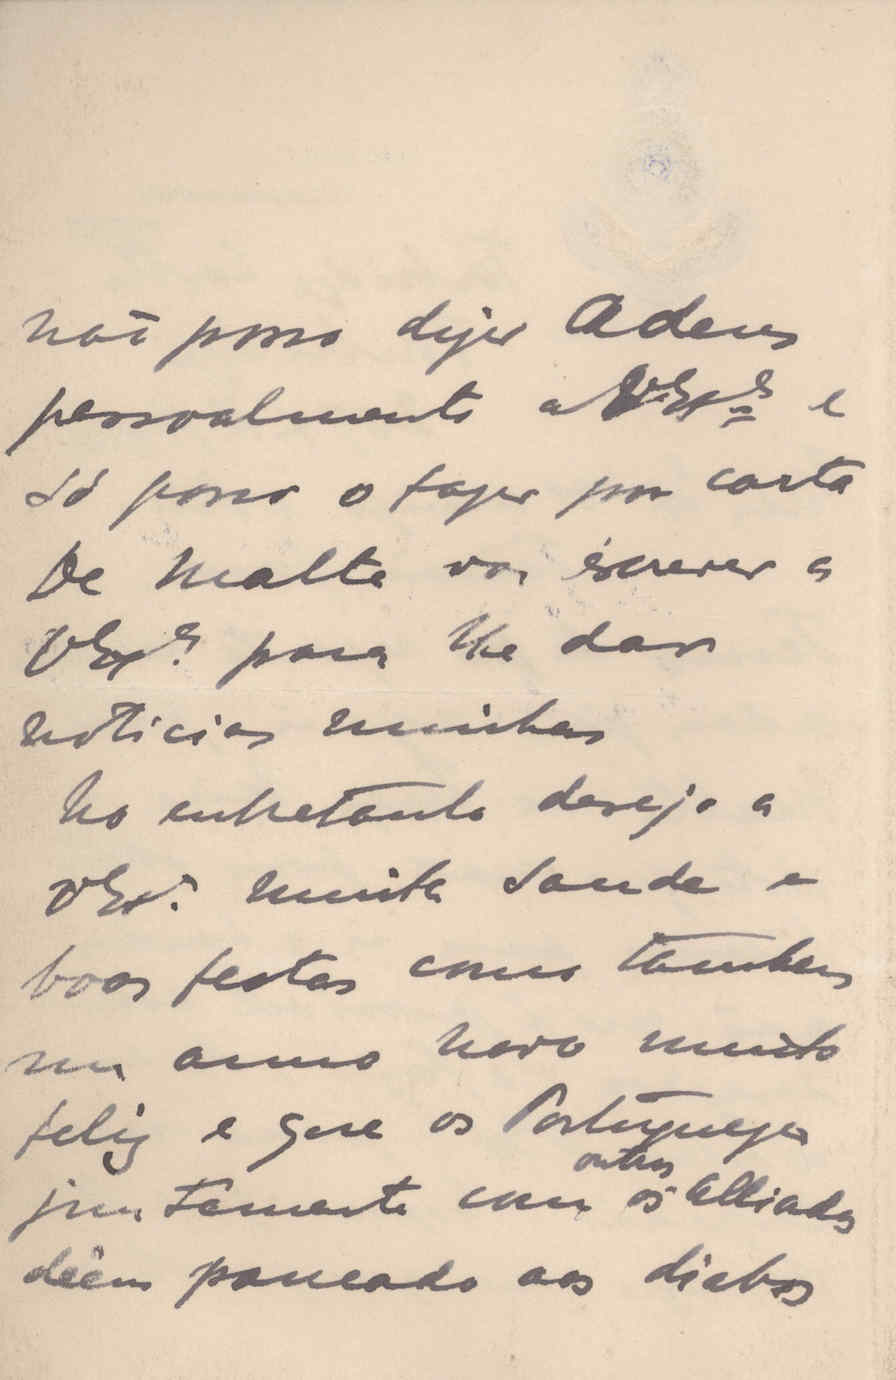 não posso dizer Adeus
pessoalmente a VExª e
só posso o fazer por carta
De Malta vou escrever a
VExª para lhe dar
noticias minhas
No entretanto desejo a
VExª muita saude e
boas festas como tambem
um anno novo muito
feliz e que os Portuguezes
juntamente com os outros Alliados
dêem pancada aos diabos